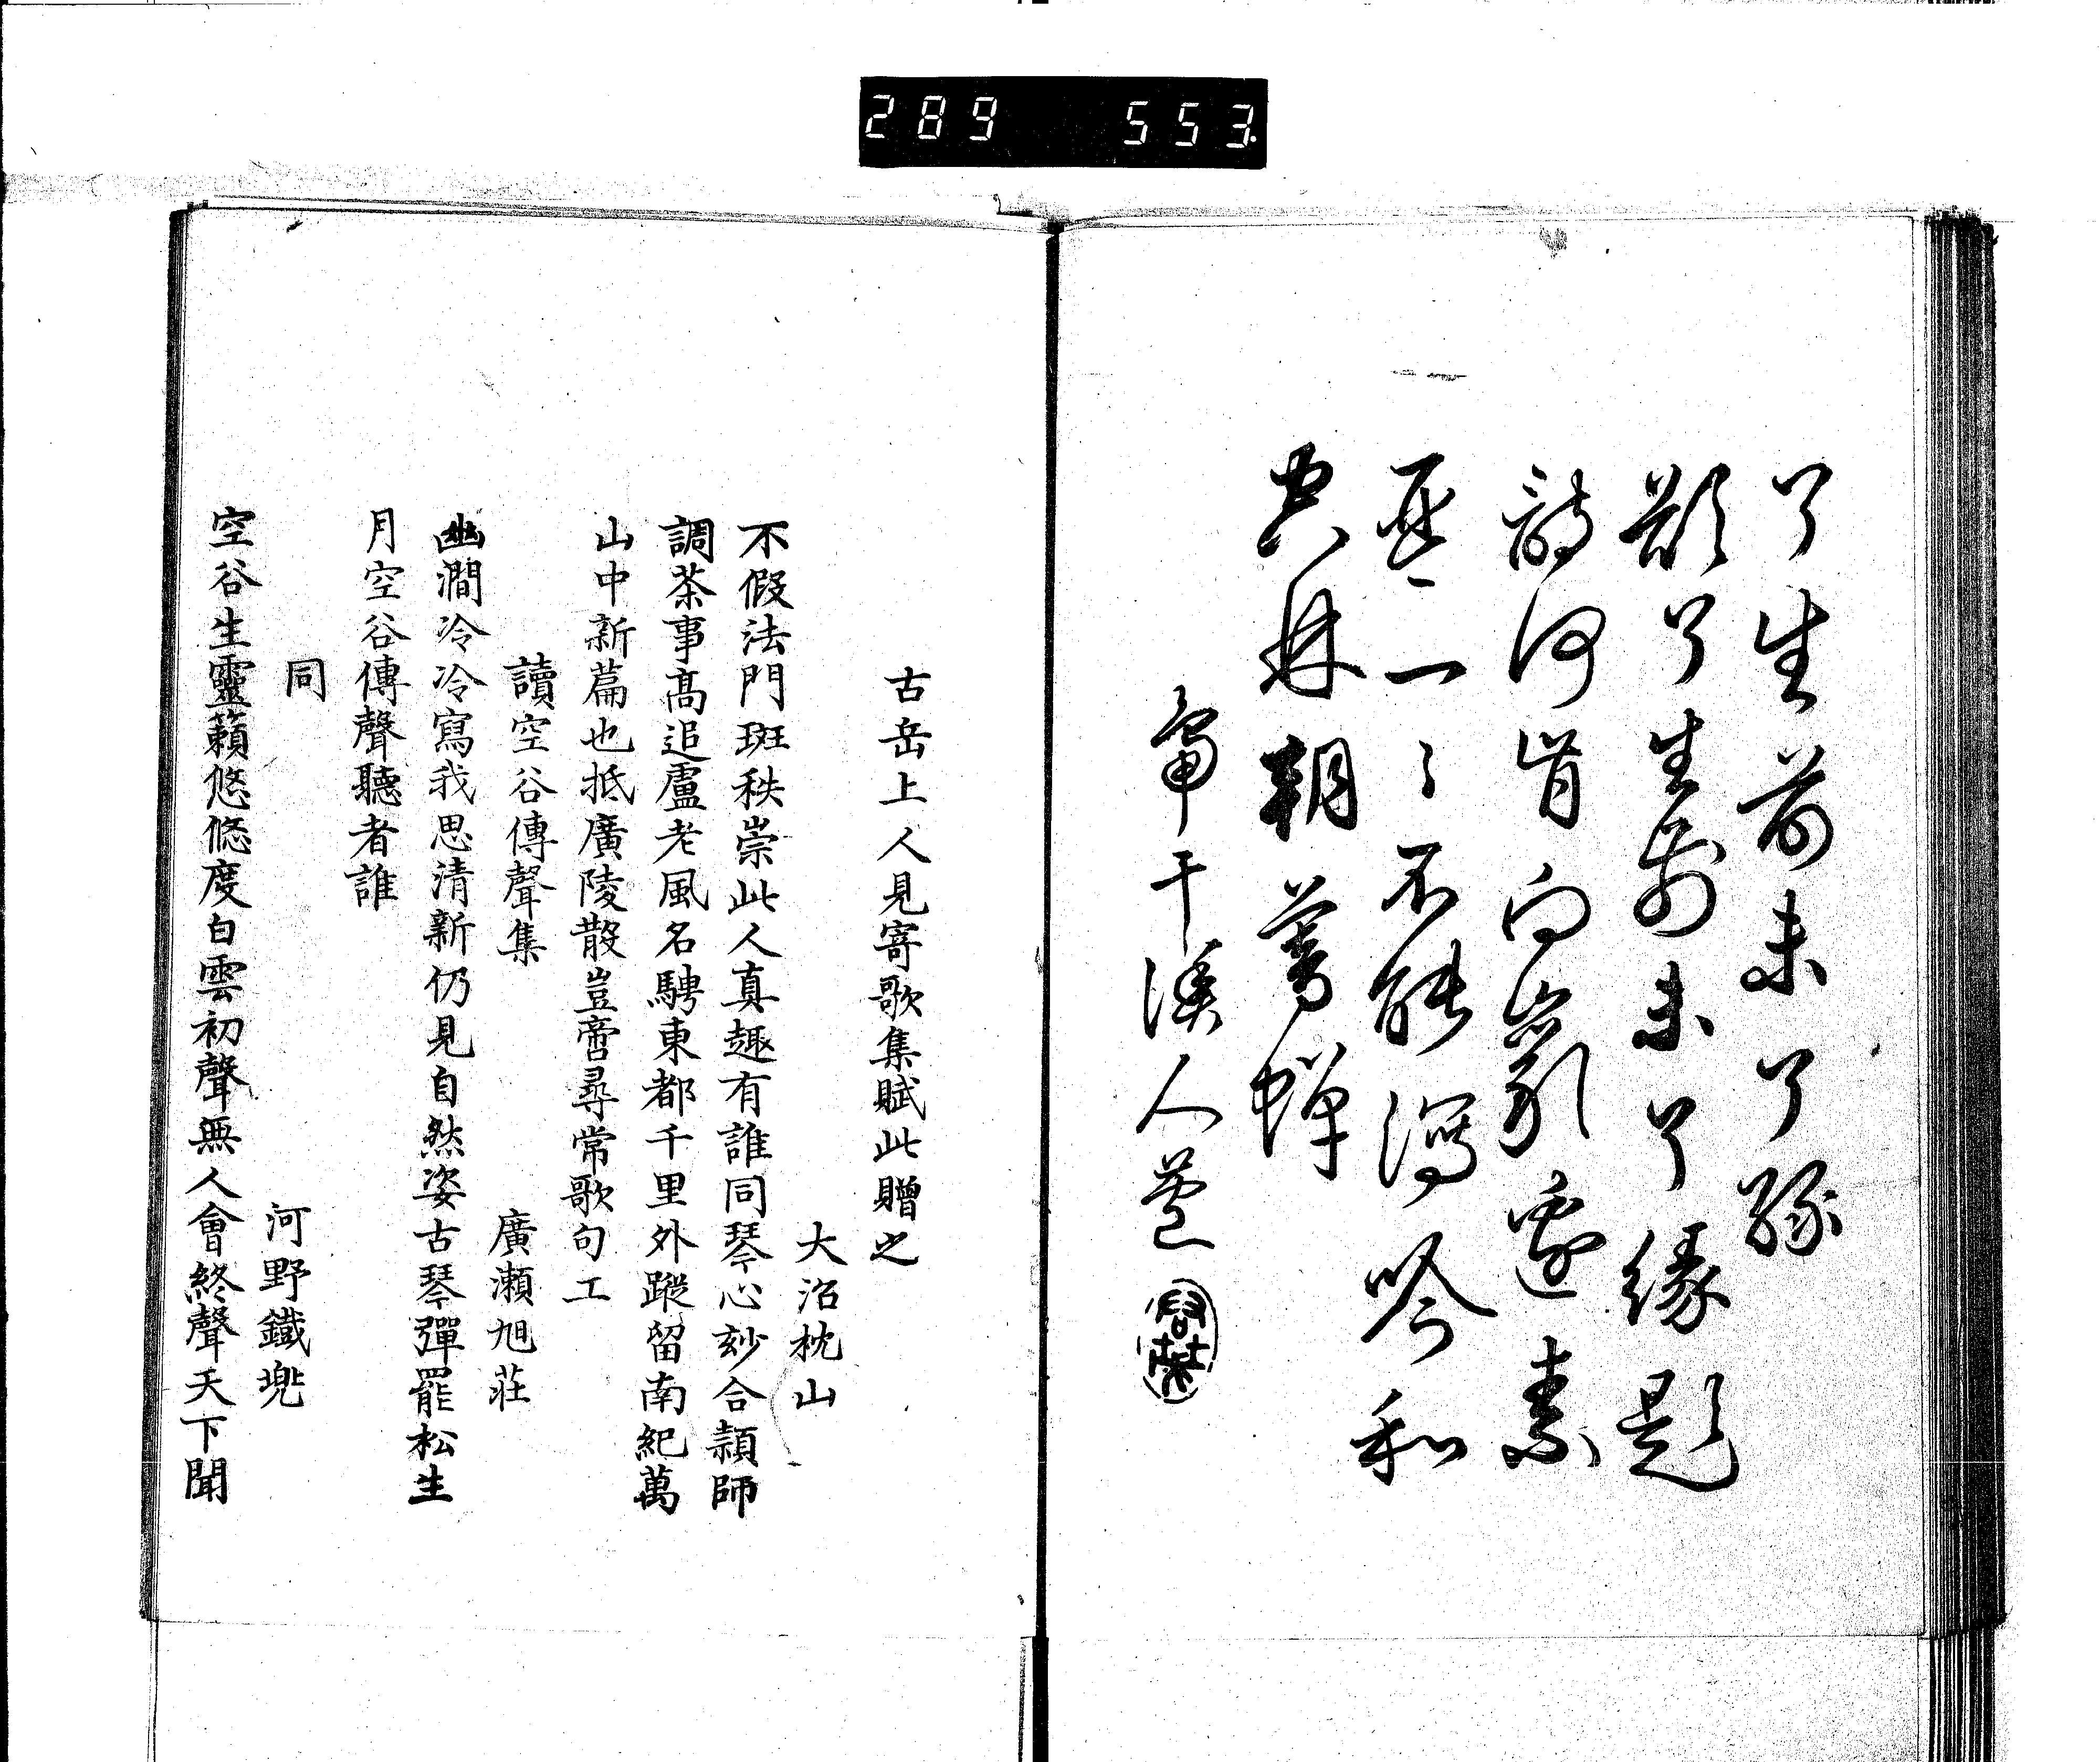 289 553
了生前未了緣
欲了生前未了緣題
詩何肯向
一々不能瀉吟和
空林朝暮蟬
干溪人
古岳上人見寄歌集賦此贈之
大沼枕山
不假法門班秩崇此人真趣有誰同琴心玅合頴師
調茶事高追盧老風名騁東都千里外蹤留南紀萬
山中新篇也抵廣陵散豈啻尋常歌句工
讀空谷傳聲集
廣瀬旭莊
幽澗冷冷寫我思清新仍見自然姿古琴彈罷松生
月空谷傳聲聽者誰
同
河野鐵兠
空谷生靈籟悠悠度白雲初聲無人會終聲天下聞